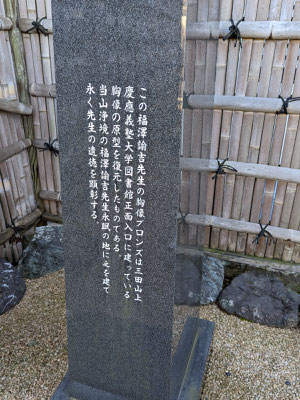 この福澤諭吉先生の胸像ブロンズは三田山上
慶應義塾大学図書館正面入口に建っている
胸像の原型を復元したものである。
当山浄境の福澤諭吉先生永眠の地に之を建て
永く先生の遺徳を顕彰する。